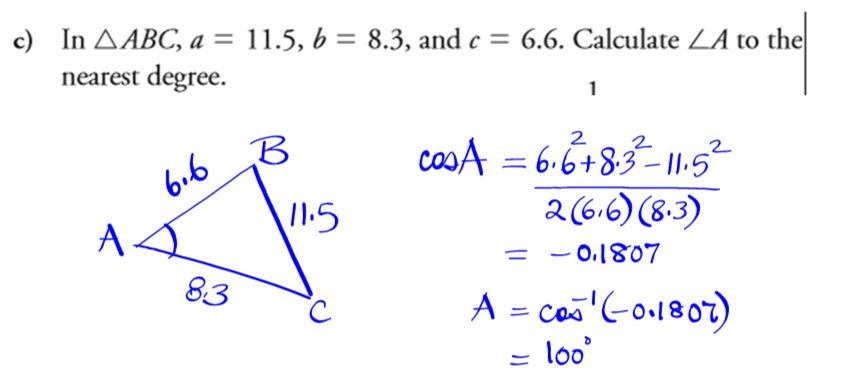 c) In △ABC, a = 11.5, b = 8.3, and c = 6.6. Calculate ∠A to the
nearest degree.
1
B
6.6
11.5
A
8.3
C
cosA = 6.6²+8.3²−11.5²
2(6.6)(8.3)
= −0.1807
A = cos⁻¹(−0.1807)
= 100°